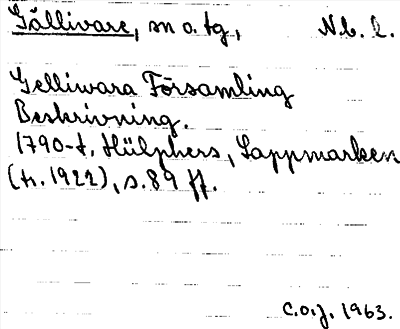 Gällivare, sn o. tg, N.b. l.
Gelliwara Församling
Beskrivning.
1790-t. Hülphers, Lappmarken
(tr. 1922), s. 89 ff.
C.O.J. 1963.